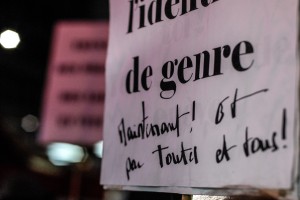 l'identi
de genre
Maintenant! Et
par toutes et tous!